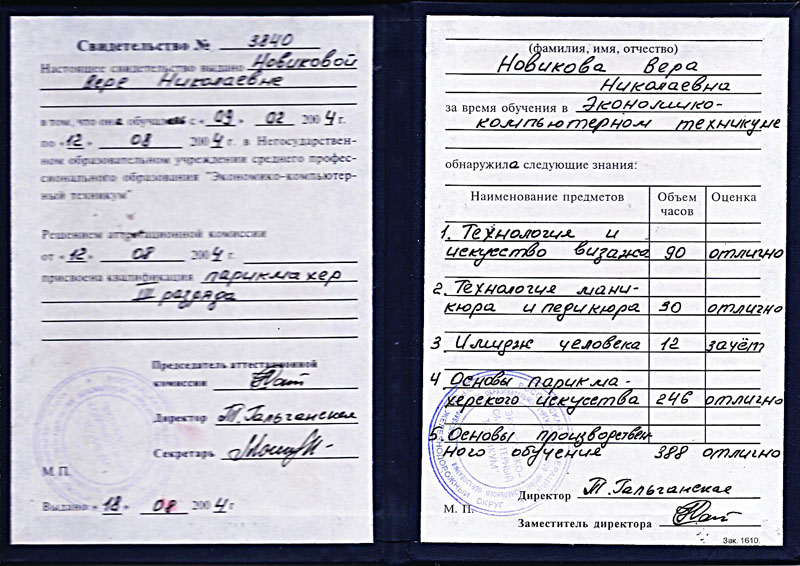 Свидетельство № 3840
Настоящее свидетельство выдано Новиковой
Вере Николаевне
в том, что она обучалась с «09» 02 2004 г.
по «12» 08 2004 г. в Негосударствен-
ном образовательном учреждении среднего профес-
сионального образования "Экономико-компьютер-
ный техникум"
Решением аттестационной комиссии
от «12» 08 2004 г.
присвоена квалификация парикмахер
III разряда
Председатель аттестационной
комиссии
Директор Т. Гальчанская
Секретарь
М.П.
Выдано «18» 08 2004 г
(фамилия, имя, отчество)
Новикова Вера
Николаевна
за время обучения в Экономико-
компьютерном техникуме
обнаружила следующие знания:
Наименование предметов Объем часов Оценка
1. Технология и
искусство визажа 90 отлично
2. Технология мани-
кюра и педикюра 90 отлично
3 Имидж человека 12 зачёт
4 Основы парикма-
херского искусства 246 отлично
5. Основы производствен
ного обучения 388 отлично
Директор Т. Гальчанская
М. П.
Заместитель директора
ЖЕЛЕЗНОДОРОЖНЫЙ ОКРУГ
Зак. 1610.